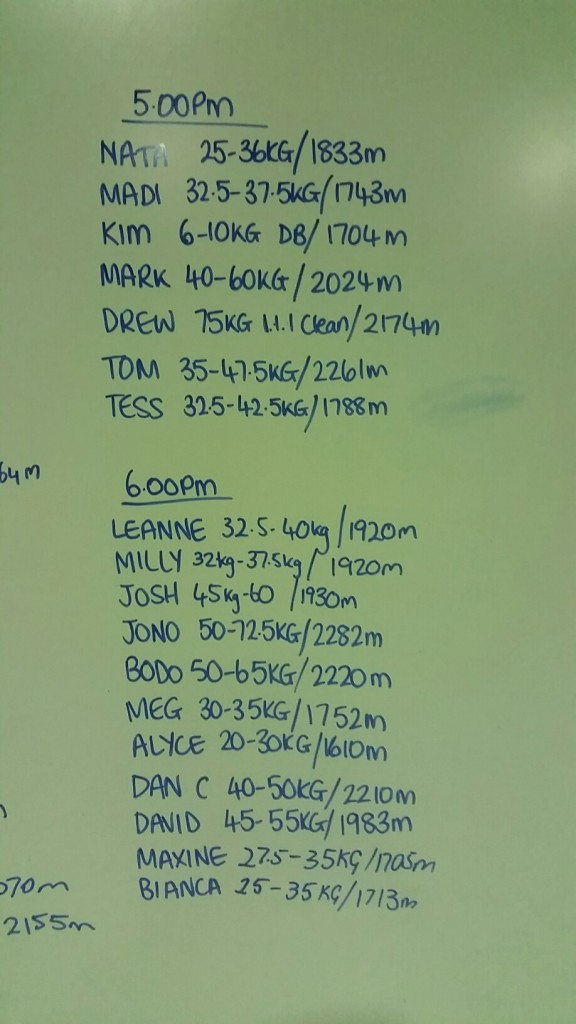 5.00pm
NATA 25-36KG/1833m
MADI 32.5-37.5KG/1743m
KIM 6-10KG DB/1704m
MARK 40-60KG/2024m
DREW 75KG 1.1.1 Clean/2174m
TOM 35-47.5KG/2261m
TESS 32.5-42.5KG/1788m
64m
6.00pm
LEANNE 32.5-40kg/1920m
MILLY 32kg-37.5kg/1920m
JOSH 45kg-60/1930m
JONO 50-72.5KG/2282m
BODO 50-65KG/2220m
MEG 30-35KG/1752m
ALYCE 20-30KG/1610m
DAN C 40-50KG/2210m
DAVID 45-55KG/1983m
MAXINE 27.5-35KG/1705m
BIANCA 25-35KG/1713m
070m
2155m